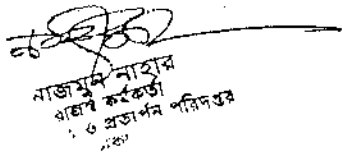 নাজমুন নাহার
রাজস্ব কর্মকর্তা
ও প্রত্যর্পন পরিদপ্তর